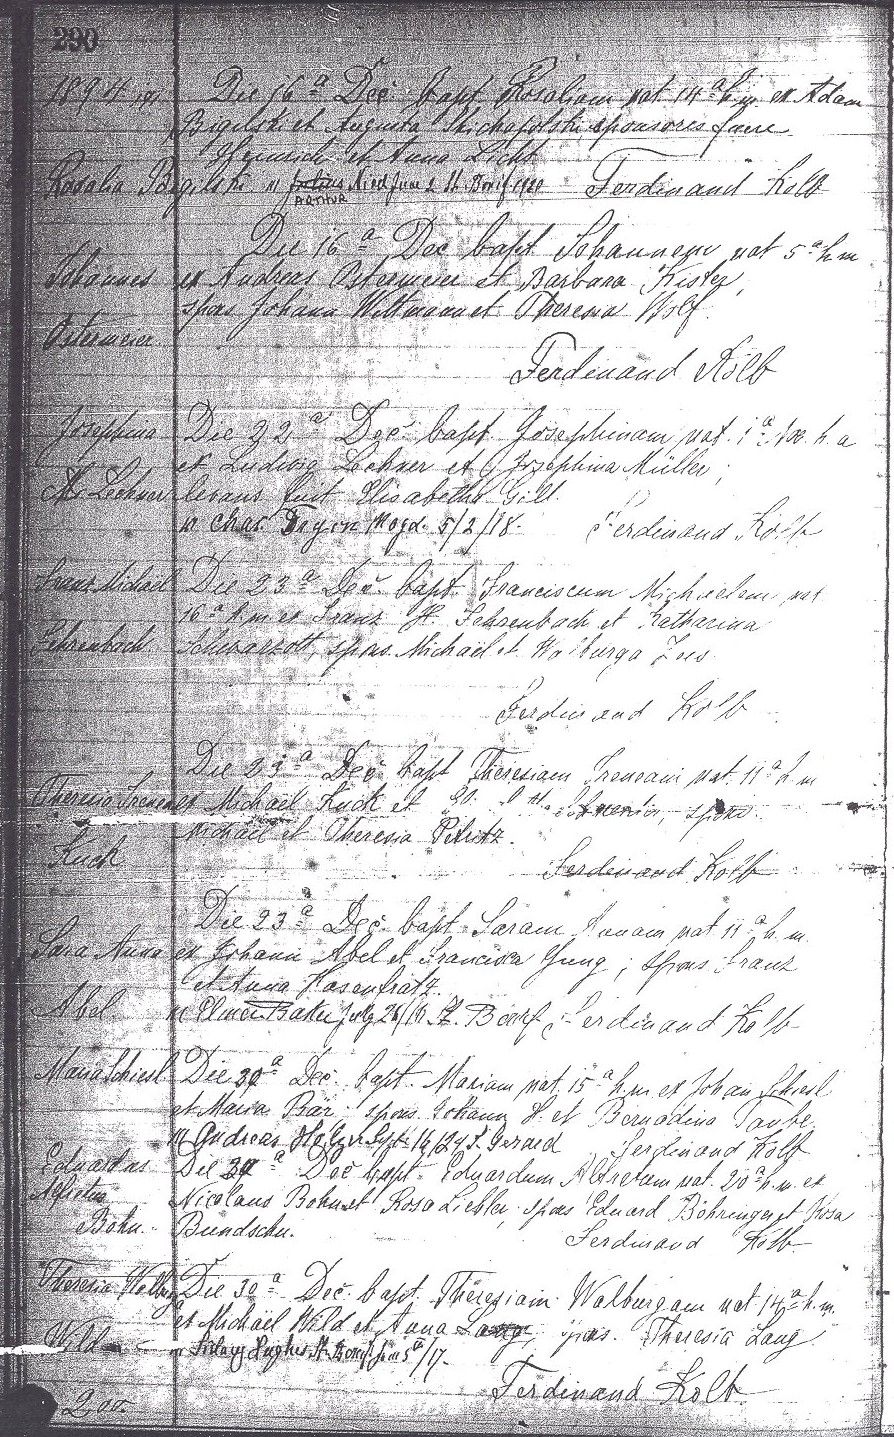 290
1894 Die 16ª Dec. bapt. Rosaliam nat 14ª h.m. ex Adam
Bigilski et Augusta sponsores fuere
Heinrich et Anna Licht
Rosalia Bigilski m Julius Nied June 2 St. Bonif 1920 Ferdinand Kolb
ARTHUR
Die 16ª Dec bapt Johannem nat 5ª h m
Johannes ex Andreas Ostermeier et Barbara Kister,
spons Johann Wittmann et Theresia Wolf.
Ostermeier
Ferdinand Kolb
Josephina Die 22ª Dec. bapt Josephinam nat. 1ª h. a
et Ludwig Lechner et Josephina Müller;
M. Lechner levans fuit Elisabetha Gill.
m Chas. Magd. 5/2/18. Ferdinand Kolb
Franz Michael Die 23ª Dec. bapt. Franciscum Michaelem nat
16ª h.m ex Franz H. Fehrenbach et Katharina
Fehrenbach Schwarzott, spons. Michaël et Walburga Zoes
Ferdinand Kolb
Die 23ª Dec bapt Theresiam Ireneam nat. 11ª h m
Theresia Irene ex Michaël Kuck et spons.
Michaël et Theresia Petritz.
Kuck Ferdinand Kolb
Die 23ª Dec. bapt. Saram Annam nat 11ª h.m.
Sara Anna ex Johann Abel et Francisca Jung; spons Franz
et Anna Hasenfratz.
Abel. m Elmer Baker July 26/16 Bonif Ferdinand Kolb
Maria Schiesl Die 30ª Dec. bapt. Mariam nat. 15ª h.m ex Johan Schiesl
et Maria Bär; spons Johann H. et Bernadina Taube
m Andreas Sept 16/24 S. Gerard Ferdinand Kolb
Eduardus Die 30ª Dec bapt. Eduardum nat. 20ª h.m. ex
Nicolaus Bohn et Rosa Liebler, spons Eduard Böhringer et Rosa
Bohn. Bundschu. Ferdinand Kolb
Theresia Walburga Die 30ª Dec. bapt. Theresiam Walburgam nat 14ª h.m.
et Michaël Wild et Anna Lang, spons. Theresia Lang
Wild m Hughes St. Bonif Jun 5ª/17.
Ferdinand Kolb
200.